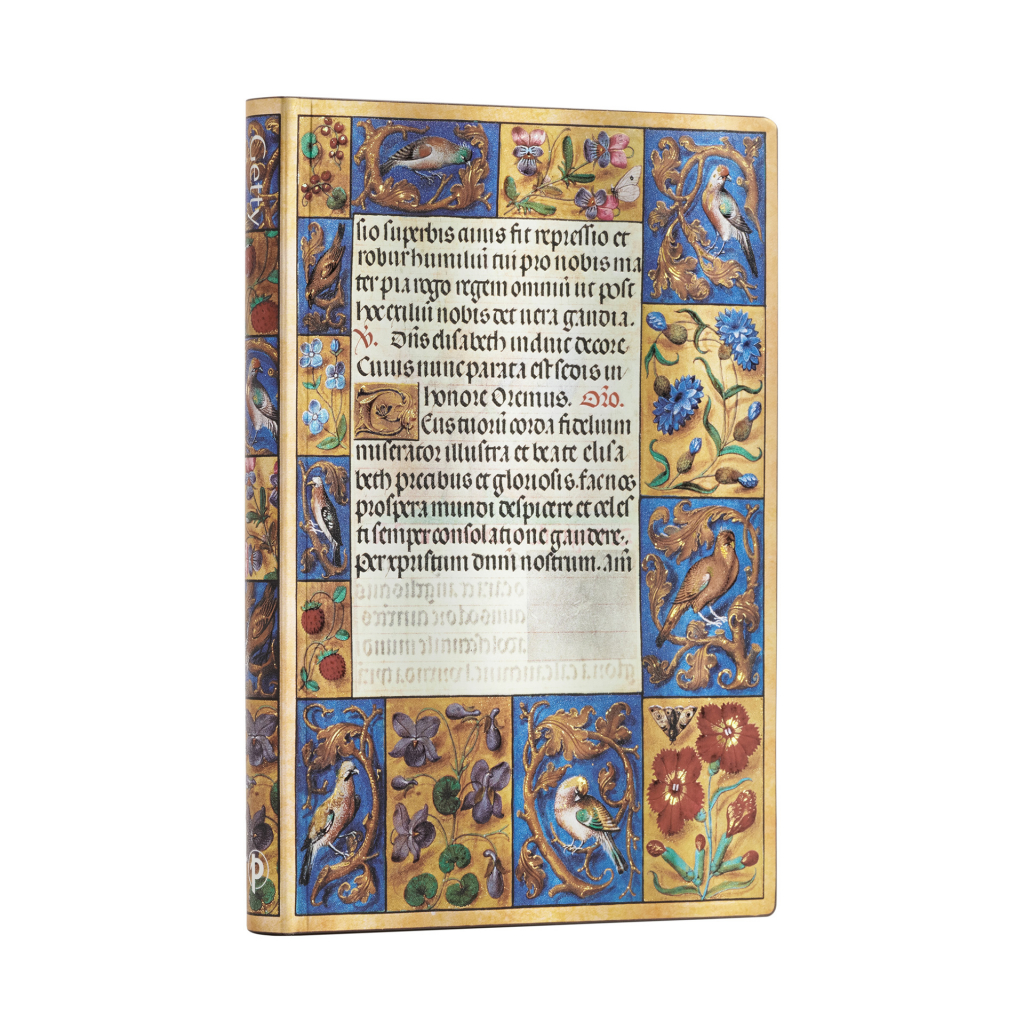 Getty
sio superbis cuius fit repressio et
robur humiliū tui pro nobis ma
ter pia rogo regem omniū ut post
hoc exiliū nobis det uera gaudia.
V. Diis elisabeth indiuit decore
Cuius nunc parata est sedis in
honore Oremus. Oro.
Deus tuorū corda fidelium
miserator illustra et beate elisa
beth precibus et gloriosis. fac nos
prospera mundi despicere et celes
ti semper consolatione gaudere.
Per xpristum dnm nostrum. Am
P